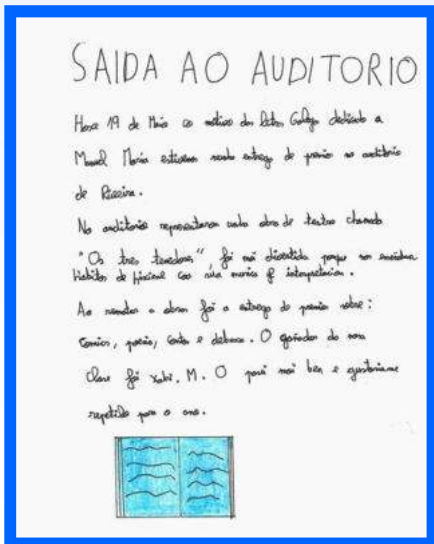 SAIDA AO AUDITORIO
Hoxe 19 de Maio co motivo das letras Galegas dedicado a
Manuel María estivemos nunha entrega de premios no auditorio
de Ribeira.
No auditorio representaron unha obra de teatro chamada
"Os tres tenedores", foi moi divertida porque nos
hábitos de hixiene coa súa e interpretación.
Ao rematar a obra foi a entrega de premios sobre:
Comics, poesía, contos e debuxo. O gañador da nosa
Clase foi Xabi. M. O pasei moi ben e gustaríame
repetilo para o ano.